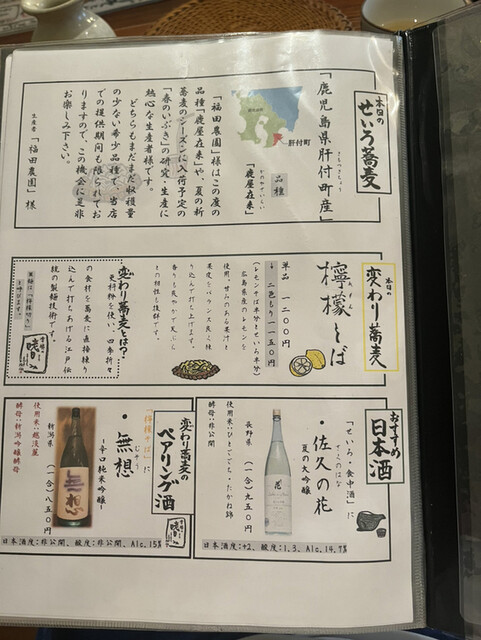 本日の
せいろ蕎麦
「鹿児島県肝付町産」
きもつきちょう
肝付町
品種
かのやざいらい
「鹿屋在来」
「福田農園」様はこの度の
品種「鹿屋在来」や、夏の新
蕎麦のシーズンに入荷予定の
「春のいぶき」の研究・生産に
熱心な生産者様です。
どちらもまだまだ収穫量
の少ない希少品種で、当店
での提供期間も限られてお
りますので、この機会に是非
お楽しみ下さい。
生産者 「福田農園」様
本日の
変わり蕎麦
檸檬そば
単品 一二〇〇円
二色もり 一一五〇円
(レモンそば半分とせいろ半分)
広島県産のレモンを
使用。甘みのある果汁と
果皮をバランス良く練
り込んで打ち上げます。
香りも爽やかで天ぷら
との相性も抜群です。
変わり蕎麦とは?
更科粉を使い、四季折々
の食材を蕎麦に直接練り
込んで打ちあげる江戸伝
統の製麺技術です。
おすすめ
日本酒
「せいろ・食中酒」に
さくのはな
・佐久の花
夏の大吟醸
長野県 (一合)九五〇円
使用米:ひとごこち・たかね錦
酵母:非公開
日本酒度:+2、酸度:1.3、Alc.14.7%
変わり蕎麦の
ペアリング酒
「檸檬そば」に
むそう
・無想
~辛口純米吟醸~
新潟県 (一合)八五〇円
使用米:越淡麗
酵母:新潟吟醸酵母
無想
日本酒度:非公開、酸度:非公開、Alc.15%